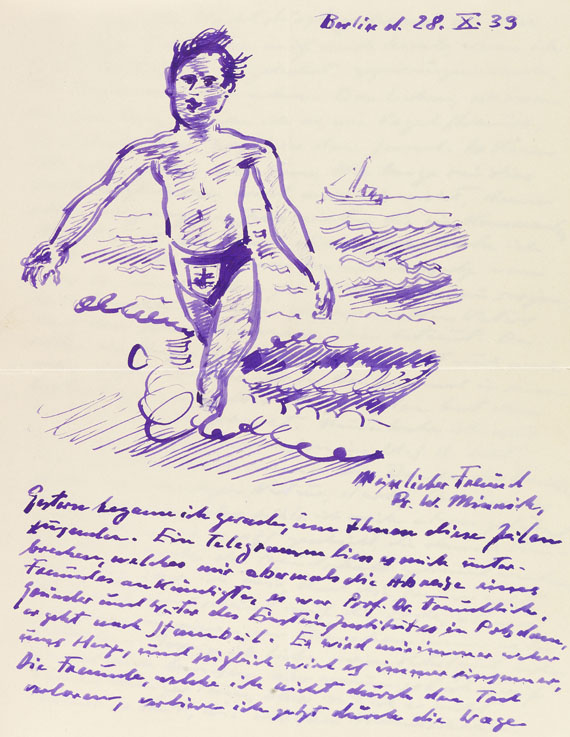 Berlin d. 28. X. 33
Mein lieber Freund
Dr. W. Minnich,
Gestern begann ich gerade, um Ihnen diese Zeilen
zusenden. Ein Telegramm liess es mich unter-
brechen, welches mir abermals die Abreise eines
Freundes ankündigte, es war Prof. Dr. Freundlich,
Gründer und Leiter des Einsteininstitutes in Potsdam,
er geht nach Stambul. Es wird mir immer weher
ums Herz, und zugleich wird es immer einsamer,
Die Freunde, welche ich nicht durch den Tod
verloren, verliere ich jetzt durch die Wege